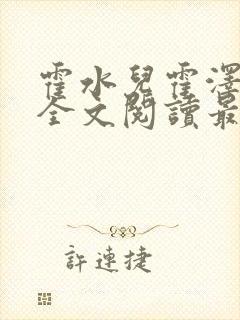 霍水兒霍澤
全文閱讀最
許連捷